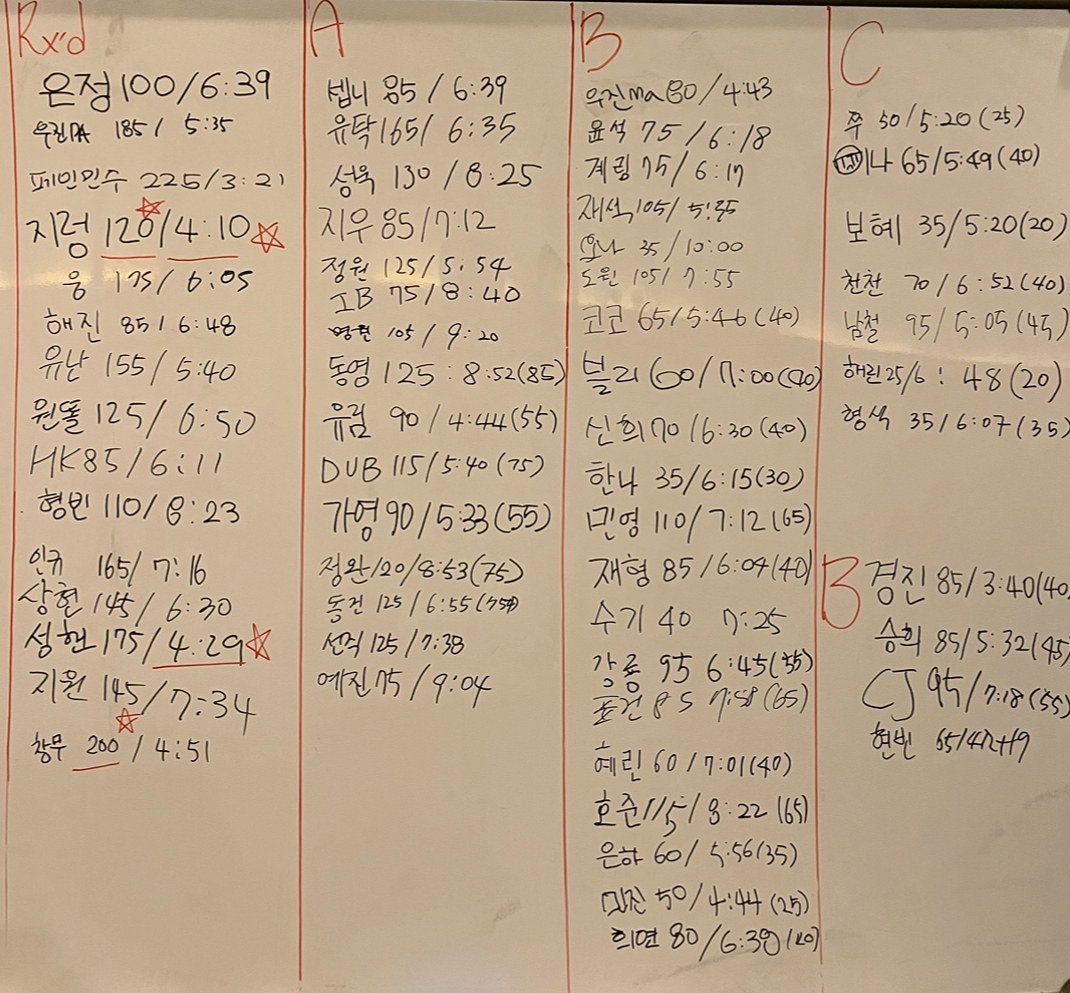 Rx'd
은정 100/6:39
우진PA 185/ 5:35
페인민수 225/3:21
지렁 120/4:10
웅 175/ 6:05
해진 85/6:48
유난 155/5:40
원똘 125/ 6:50
HK 85/6:11
형빈 110/ 8:23
인규 165/ 7:16
상현 145/ 6:30
성헌 175/4:29
지원 145/7:34
창무 200 / 4:51
A
셉니 85 / 6:39
유탁 165/ 6:35
성욱 130 / 8:25
지우 85/7:12
정원 125/5:54
IB 75/8:40
105 / 9:20
동영 125 : 8:52(85)
유림 90 / 4:44(55)
DUB 115/5:40 (75)
가영 90/5:33(55)
정완 120/8:53(75)
동건 125 / 6:55
선직 125/7:38
예진 75 / 9:04
B
우진ma 80 / 4:43
윤석 75 / 6:18
계림 75/ 6:17
재석 105/
35 / 10:00
도원 105/ 7:55
코코 65/5:46 (40)
블리 60/7:00(40)
신희 70 /6:30 (40)
한나 35/6:15(30)
민영 110 / 7:12(65)
재형 85 /6:04(40)
수기 40 7:25
강룡 95 6:45(55)
85 7:58 (65)
혜린 60 /7:01(40)
호준 115/ 8:22 (65)
은하 60/ 5:56(35)
민진 50/4:44 (25)
희연 80 /6:39
C
쭈 50/5:20 (25)
미나 65/5:49(40)
보혜 35/5:20(20)
찬찬 70 / 6:52(40)
남철 95/ 5:05(45)
해린 25/6 : 48(20)
형석 35/6:07(35)
B
경진 85/3:40(40)
승희 85/5:32(45)
CJ 95/7:18(55)
현빈 65/